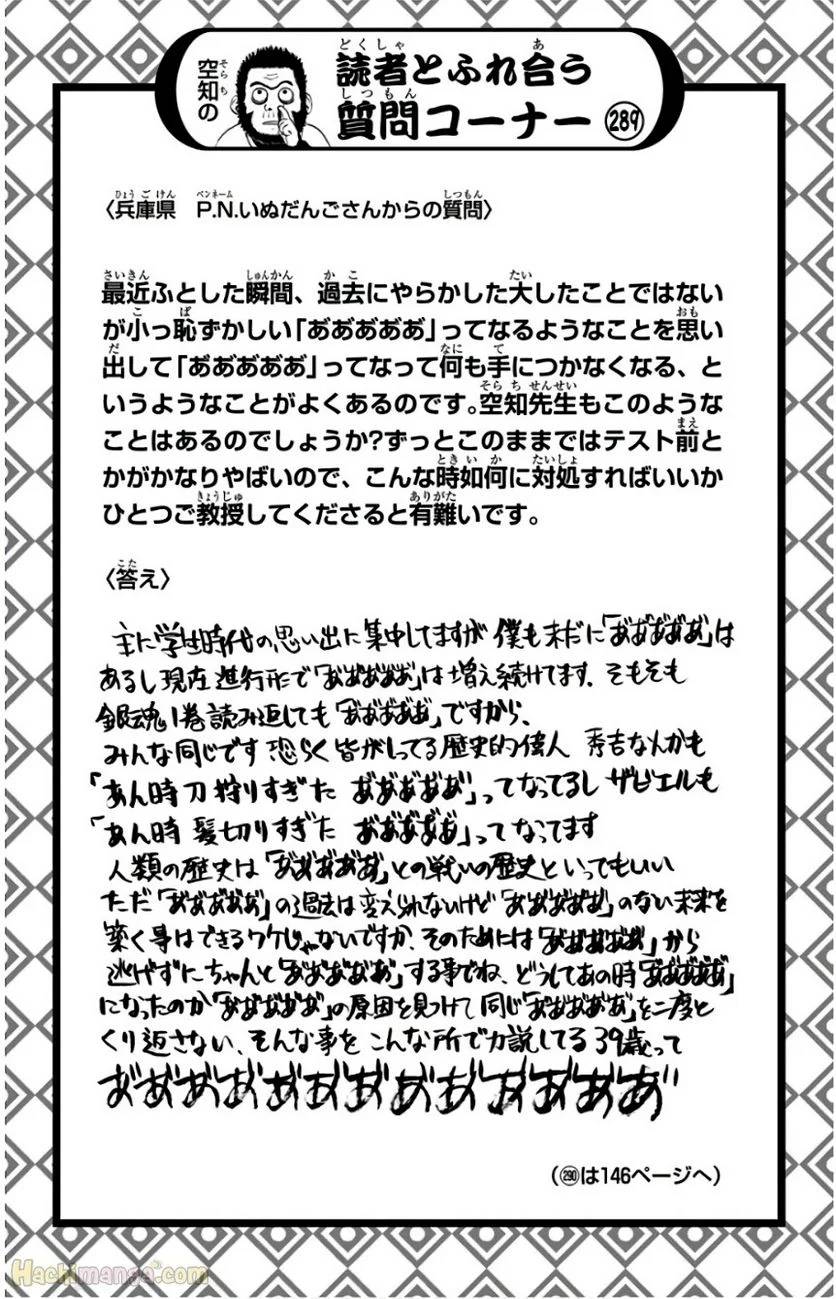 空知の
読者とふれ合う
質問コーナー 289
〈兵庫県　P.N.いぬだんごさんからの質問〉
最近ふとした瞬間、過去にやらかした大したことではない
が小っ恥ずかしい「あ゛あ゛あ゛あ゛あ゛」ってなるようなことを思い
出して「あ゛あ゛あ゛あ゛あ゛」ってなって何も手につかなくなる、と
いうようなことがよくあるのです。空知先生もこのような
ことはあるのでしょうか?ずっとこのままではテスト前と
かがかなりやばいので、こんな時如何に対処すればいいか
ひとつご教授してくださると有難いです。
〈答え〉
主に学生時代の思い出に集中してますが 僕も未だに「あ゛あ゛あ゛あ゛あ゛」は
あるし現在進行形で「あ゛あ゛あ゛あ゛あ゛」は増え続けてます、そもそも
銀魂1巻読み返しても「あ゛あ゛あ゛あ゛あ゛」ですから、
みんな同じです 恐らく皆がしってる歴史的偉人 秀吉なんかも
「あん時刀狩りすぎた あ゛あ゛あ゛あ゛あ゛」ってなってるし ザビエルも
「あん時 髪切りすぎた あ゛あ゛あ゛あ゛あ゛」ってなってます
人類の歴史は「あ゛あ゛あ゛あ゛あ゛」との戦いの歴史といってもいい
ただ「あ゛あ゛あ゛あ゛あ゛」の過去は変えられないけど「あ゛あ゛あ゛あ゛あ゛」のない未来を
築く事はできるワケじゃないですか、そのためには「あ゛あ゛あ゛あ゛あ゛」から
逃げずにちゃんと「あ゛あ゛あ゛あ゛あ゛」する事でね、どうしてあの時「あ゛あ゛あ゛あ゛あ゛」
になったのか「あ゛あ゛あ゛あ゛あ゛」の原因を見つけて同じ「あ゛あ゛あ゛あ゛あ゛」を二度と
くり返さない、そんな事をこんな所で力説してる39歳って
あ゛あ゛あ゛あ゛あ゛あ゛あ゛あ゛あ゛あ゛あ゛あ゛あ゛あ゛
(290は146ページへ)
Hachimanga.com